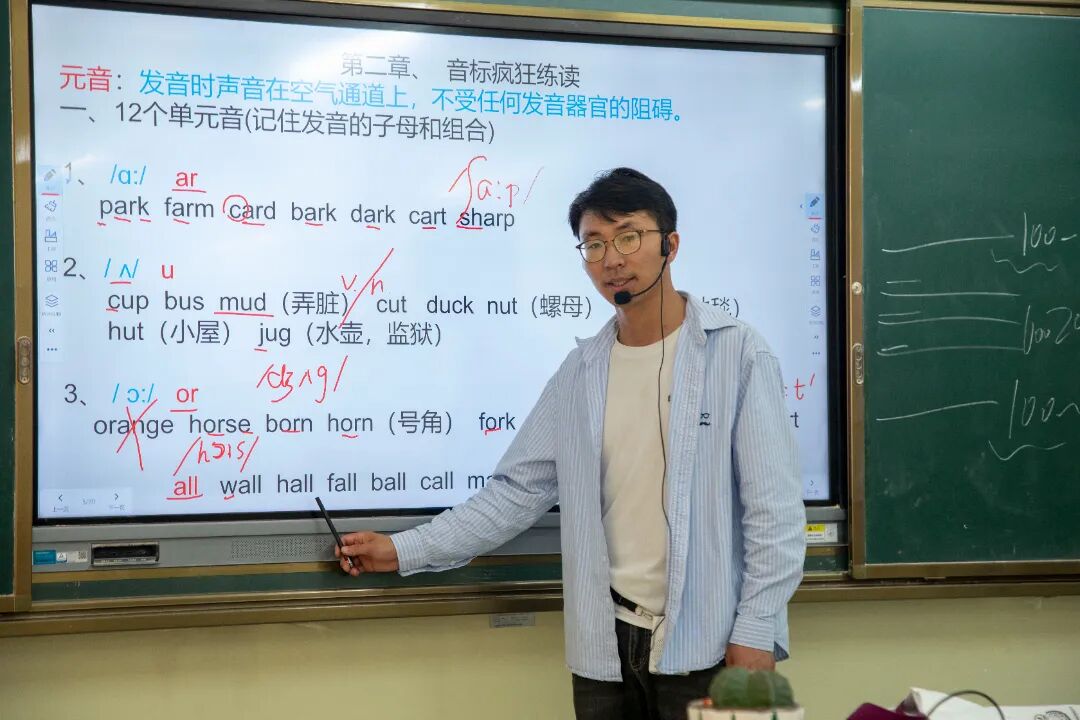 第二章、 音标疯狂练读
元音：发音时声音在空气通道上，不受任何发音器官的阻碍。
一、12个单元音(记住发音的子母和组合)
1、 /ɑː/ ar
/ʃɑːp/
park farm card bark dark cart sharp
2、 /ʌ/ u
v. n
cup bus mud（弄脏） cut duck nut（螺母）
hut（小屋） jug（水壶，监狱）
/dʒʌg/
3、 /ɔː/ or
orange horse born horn（号角） fork
/hɔːs/
all wall hall fall ball call
上一页 5/20 下一页
100
100